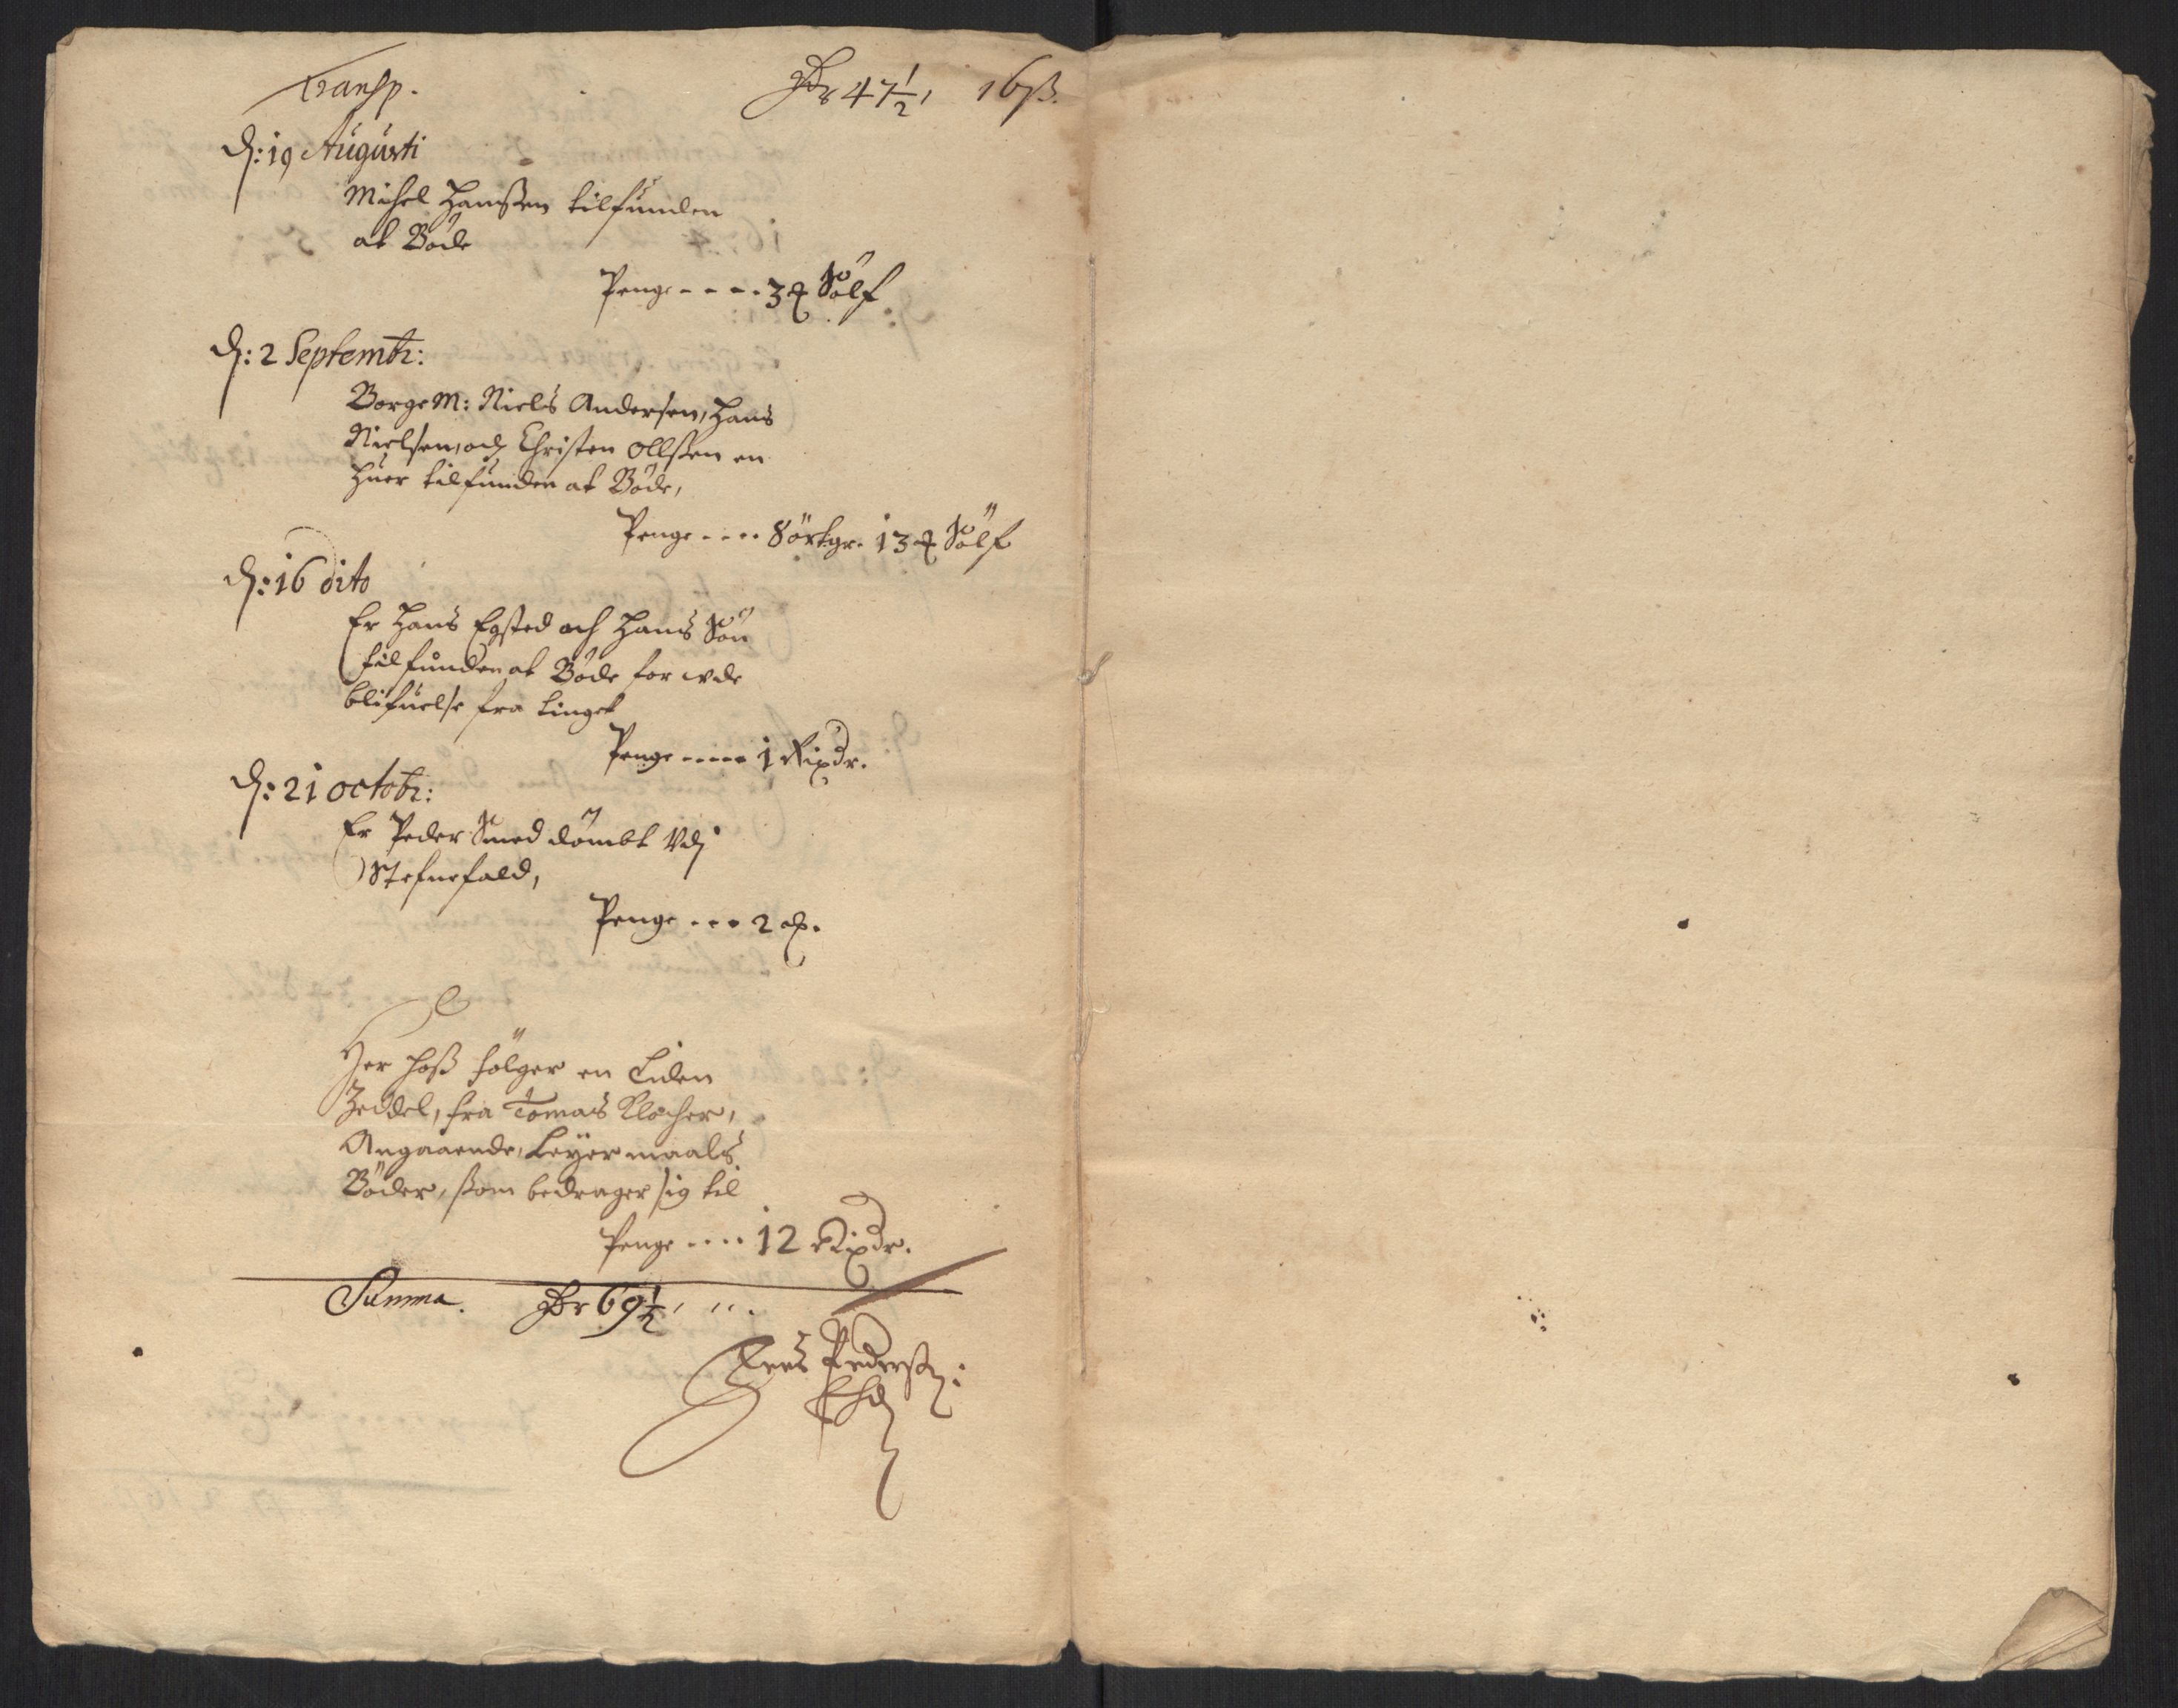 Transp. Dr 47½, 16 ß.
D: 19 Augusti
Michel Hanssen tilfunden
at Böde
Penge - - - - 3 Sölf
D: 2 Septembr:
BorgeM: Niels Andersen, Hans
Nielsen, och Christen Ollssen en
huer tilfunden at Böde,
Penge .... 8 örtger. 13 Sölf
D: 16 dito
Er Hans Egsted och Hans Sön
tilfunden at Böde for wde
blifuelse fra tinget
Penge ----- 1 Rixdr.
D: 21 octobr:
Er Peder Smed dömbt Vdj
Stefnefald,
Penge ... 2
Her hoß fölger en Liden
Zeddel, fra Tomas Klocker,
Angaaende, Leyermaals
Böder, ssom bedrager sig til
Penge .... 12 Rixdr.
Summa. Dr 69½, ,,.
Pederß: